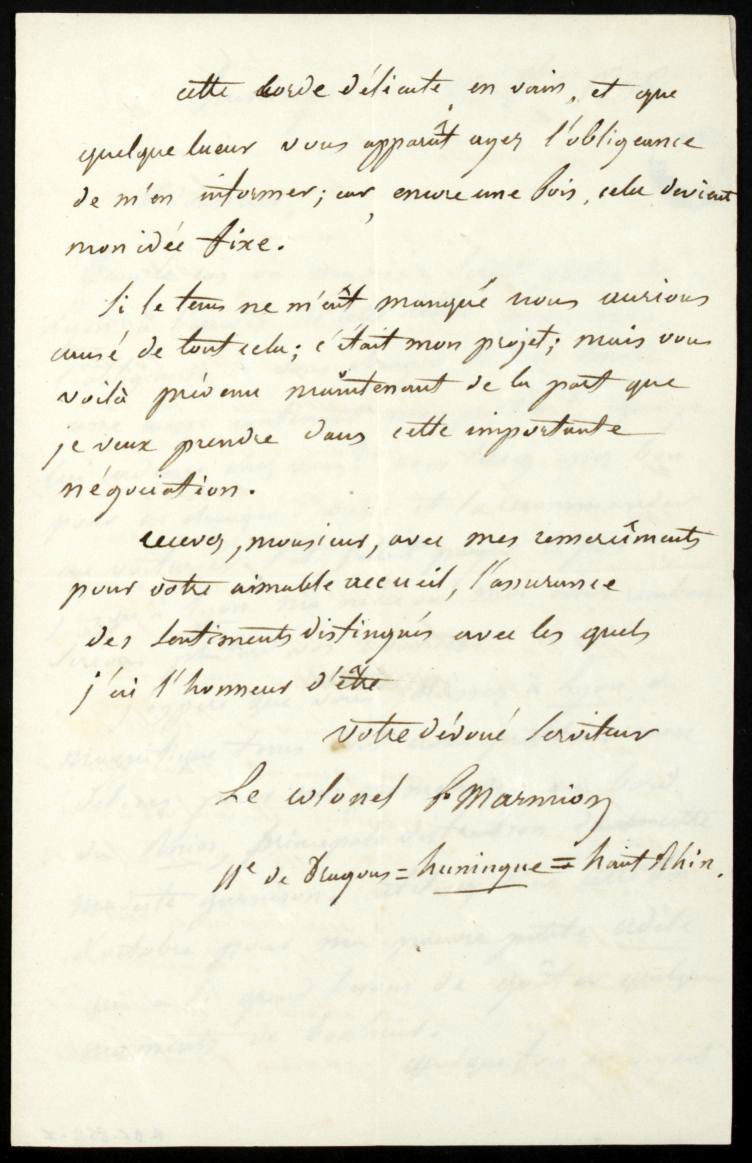 cette corde délicate en vain, et que
quelque lueur vous apparût ayez l'obligeance
de m'en informer; car, encore une fois, cela devient
mon idée fixe.
Si le tems ne m'eût manqué nous aurions
causé de tout cela; c'était mon projet; mais vous
voilà prévenu maintenant de la part que
je veux prendre dans cette importante
négociation.
recevez, monsieur, avec mes remercîments
pour votre aimable accueil, l'assurance
des sentiments distingués avec les quels
j'ai l'honneur d'être
votre dévoué serviteur
Le colonel Marmion
11e de Dragons = huningue = haut Rhin.